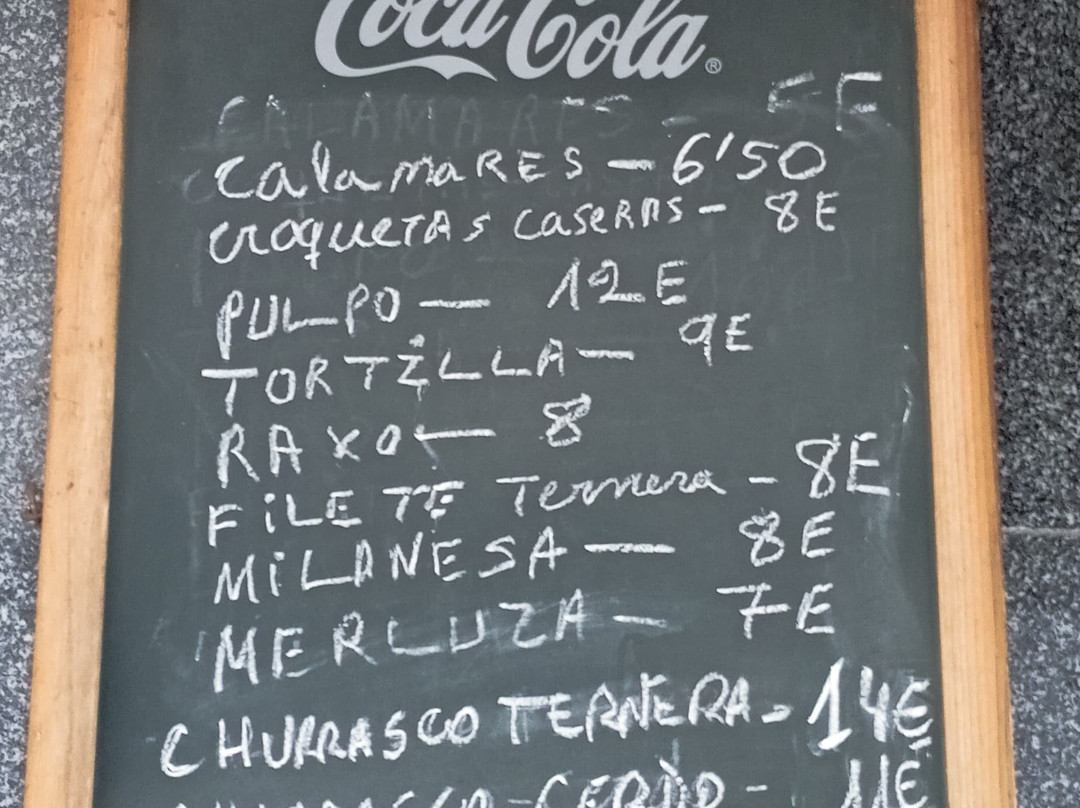 Coca Cola ®
CALAMARES - 5E
CalamaRES — 6'50
croqueTAS caserAs - 8E
PULPO — 12E
TORTiLLA — 9E
RAXO — 8
FiLETE Ternera - 8E
MiLANESA — 8E
MERLUZA — 7E
CHURRASCO TERNERA - 14E
CHURRASCO - CERDO - 11E